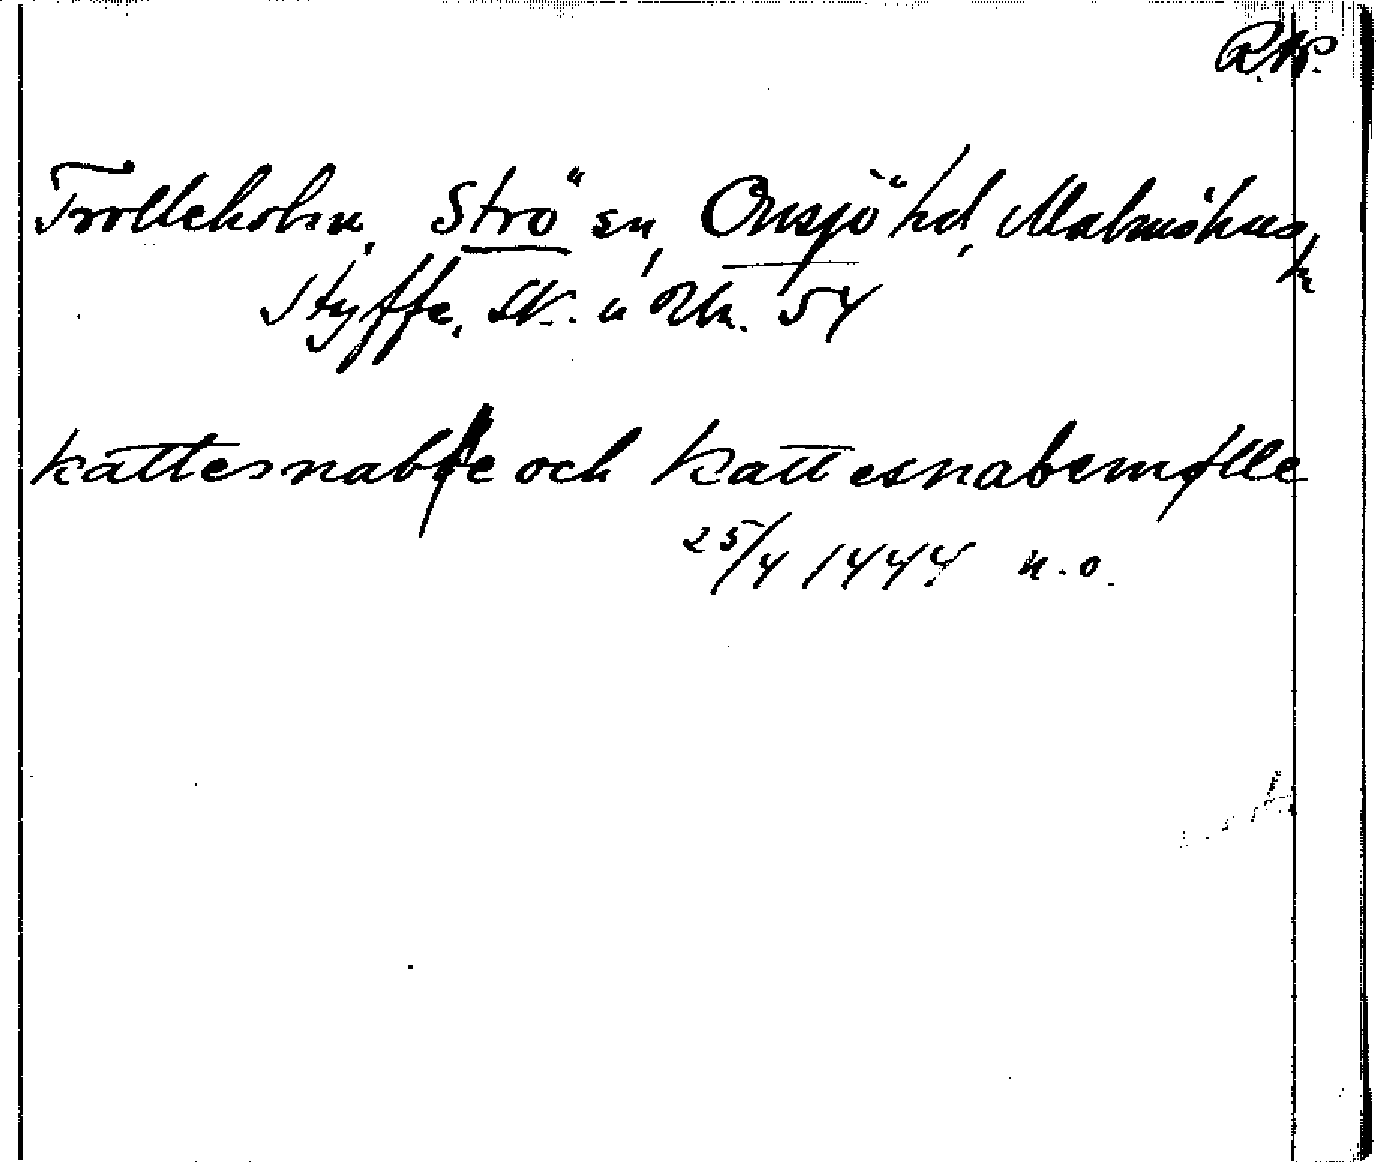 R.AP.
Trolleholm, Strö sn, Onsjö hd, Malmöhus
Styffe, Sk. u Un. 54
kattesnabbe och Kattesnabemølle
25/4 1444 n.o.